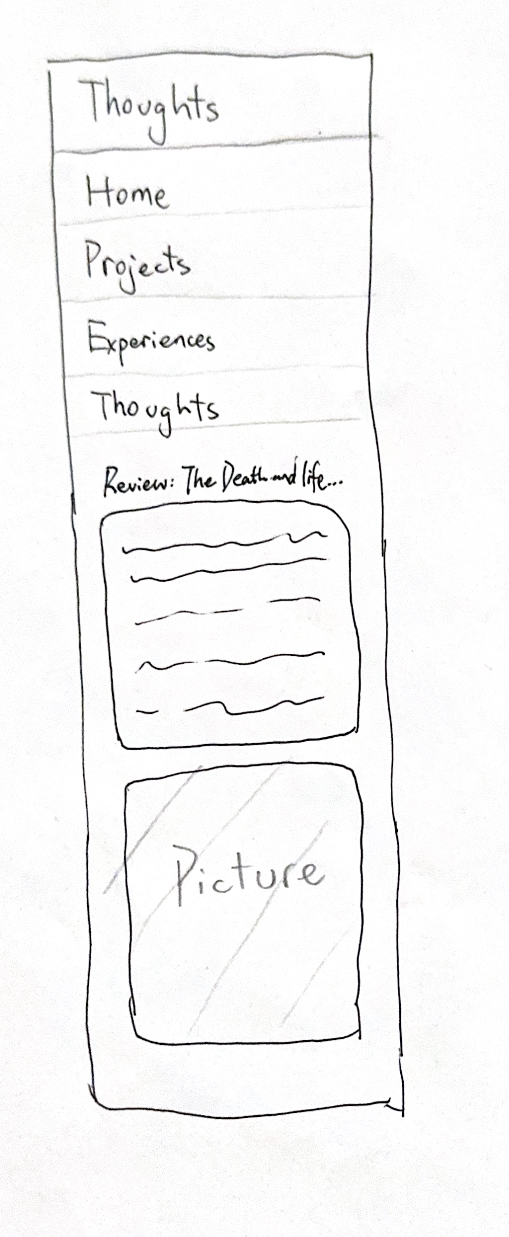 Thoughts
Home
Projects
Experiences
Thoughts
Review: The Death and life...
Picture